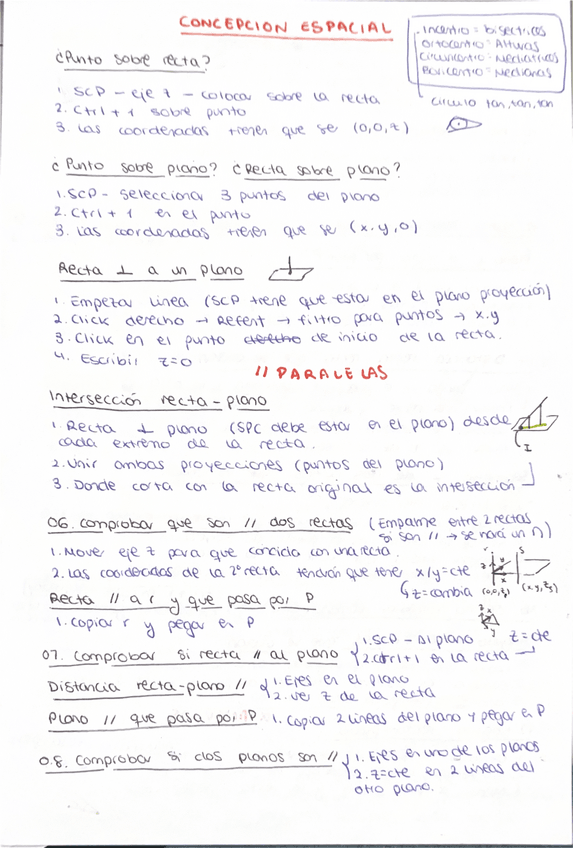 CONCEPCION ESPACIAL
Incentro = bisectrices
Ortocentro = Alturas
Circuncentro = Mediatrices
Baricentro = Medianas
circulo tan, tan, tan
¿Punto sobre recta?
1. SCP - eje z - colocar sobre la recta
2. Ctrl + 1 sobre punto
3. Las coordenadas tienen que se (0,0,z)
¿Punto sobre plano? ¿Recta sobre plano?
1. SCP - selecciona 3 puntos del plano
2. Ctrl + 1 en el punto
3. Las coordenadas tienen que se (x,y,0)
Recta ⊥ a un plano
1. Empezar linea (SCP tiene que estar en el plano proyección)
2. Click derecho → Refent → filtro para puntos → x.y
3. Click en el punto derecho de inicio de la recta.
4. Escribir z=0
// PARALELAS
Intersección recta - plano
1. Recta ⊥ plano (SPC debe estar en el plano) desde
cada extremo de la recta.
I
2. Unir ambas proyecciones (puntos del plano)
3. Donde corta con la recta original es la intersección
06. Comprobar que son // dos rectas (Empalme entre 2 rectas
si son // → se hará un ∩)
1. Mover eje z para que concida con una recta.
2. Las coordecadas de la 2ª recta tendrán que tene x/y=cte
↳ z=cambia (0,0,z1) (x,y,z3)
Recta // a r y que pasa poi P
1. copiar r y pegar en P
07. Comprobar si recta // al plano { 1. SCP - al plano z=cte
2. ctrl+1 en la recta
Distancia recta-plano // { 1. Ejes en el plano
2. ver z de la recta
Plano // que pasa poi P 1. Copiar 2 lineas del plano y pegar en P
08. Comprobar si dos planos son // { 1. Ejes en uno de los planos
2. z=cte en 2 lineas del
otro plano.